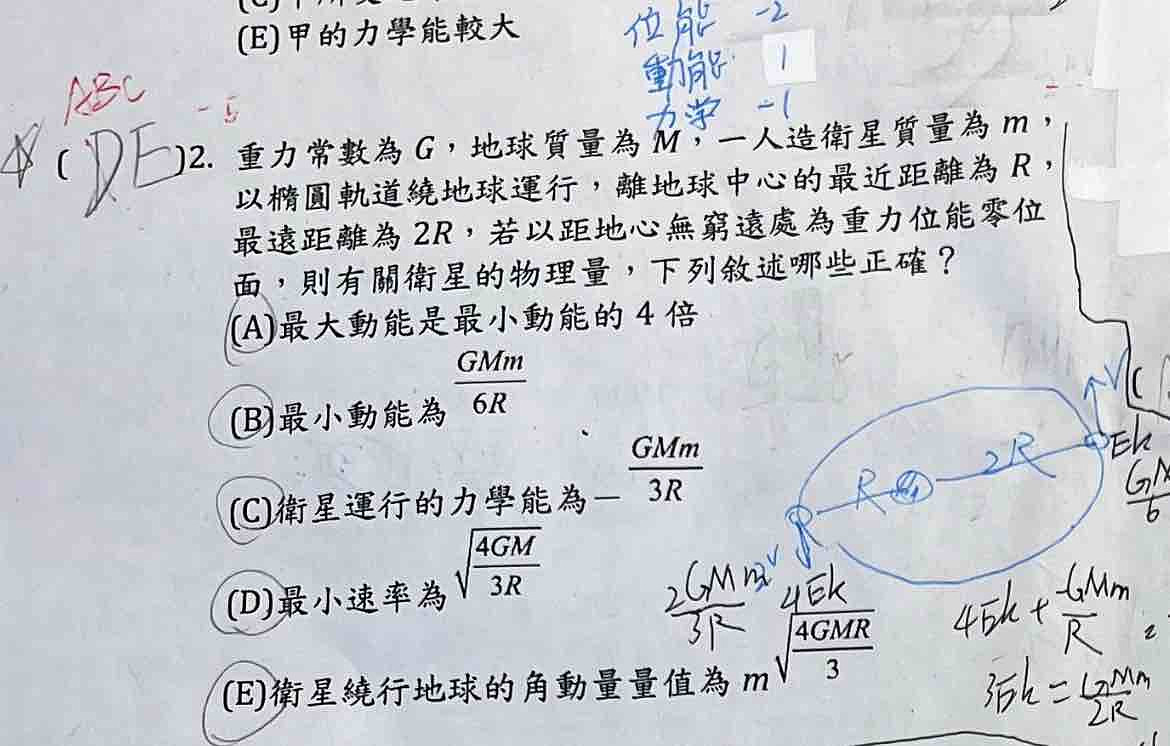 (E)甲的力學能較大
位能 -2
動能 1
力学 -1
ABC
-5
(DE)2. 重力常數為 G，地球質量為 M，一人造衛星質量為 m，
以橢圓軌道繞地球運行，離地球中心的最近距離為 R，
最遠距離為 2R，若以距地心無窮遠處為重力位能零位
面，則有關衛星的物理量，下列敘述哪些正確？
(A)最大動能是最小動能的 4 倍
(B)最小動能為 GMm/6R
(C)衛星運行的力學能為－GMm/3R
(D)最小速率為 √(4GM/3R)
(E)衛星繞行地球的角動量量值為 m√(4GMR/3)
R 2R
V
Ek
V
2GMm/3R 4Ek
4Ek + -GMm/R =
3Ek = GMm/2R